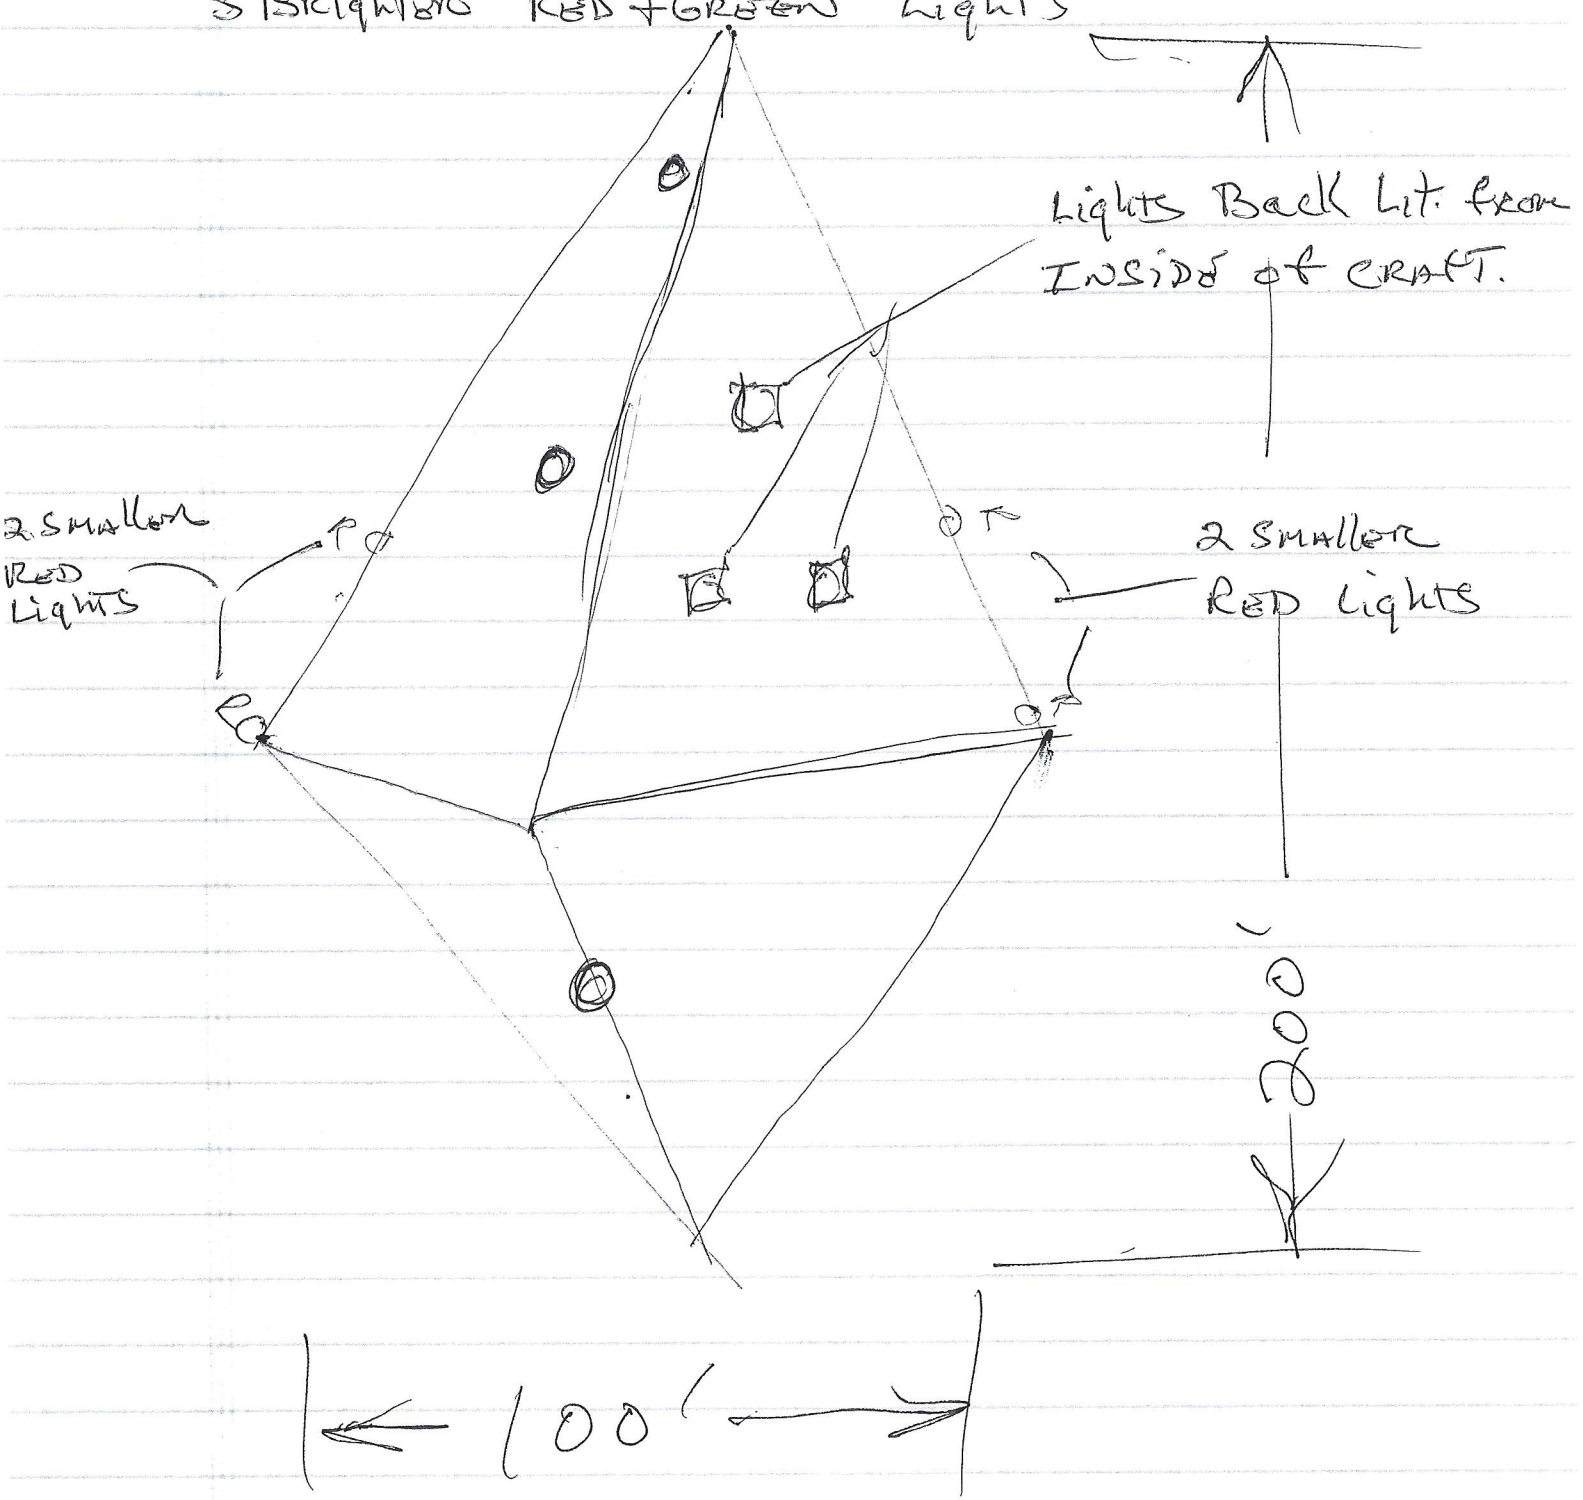 3 BRIGHTER RED + GREEN Lights
Lights Back Lit. from
INSiDE of CRAFT.
2 SMAller
RED
Lights
2 SMAller
RED Lights
200'
100'